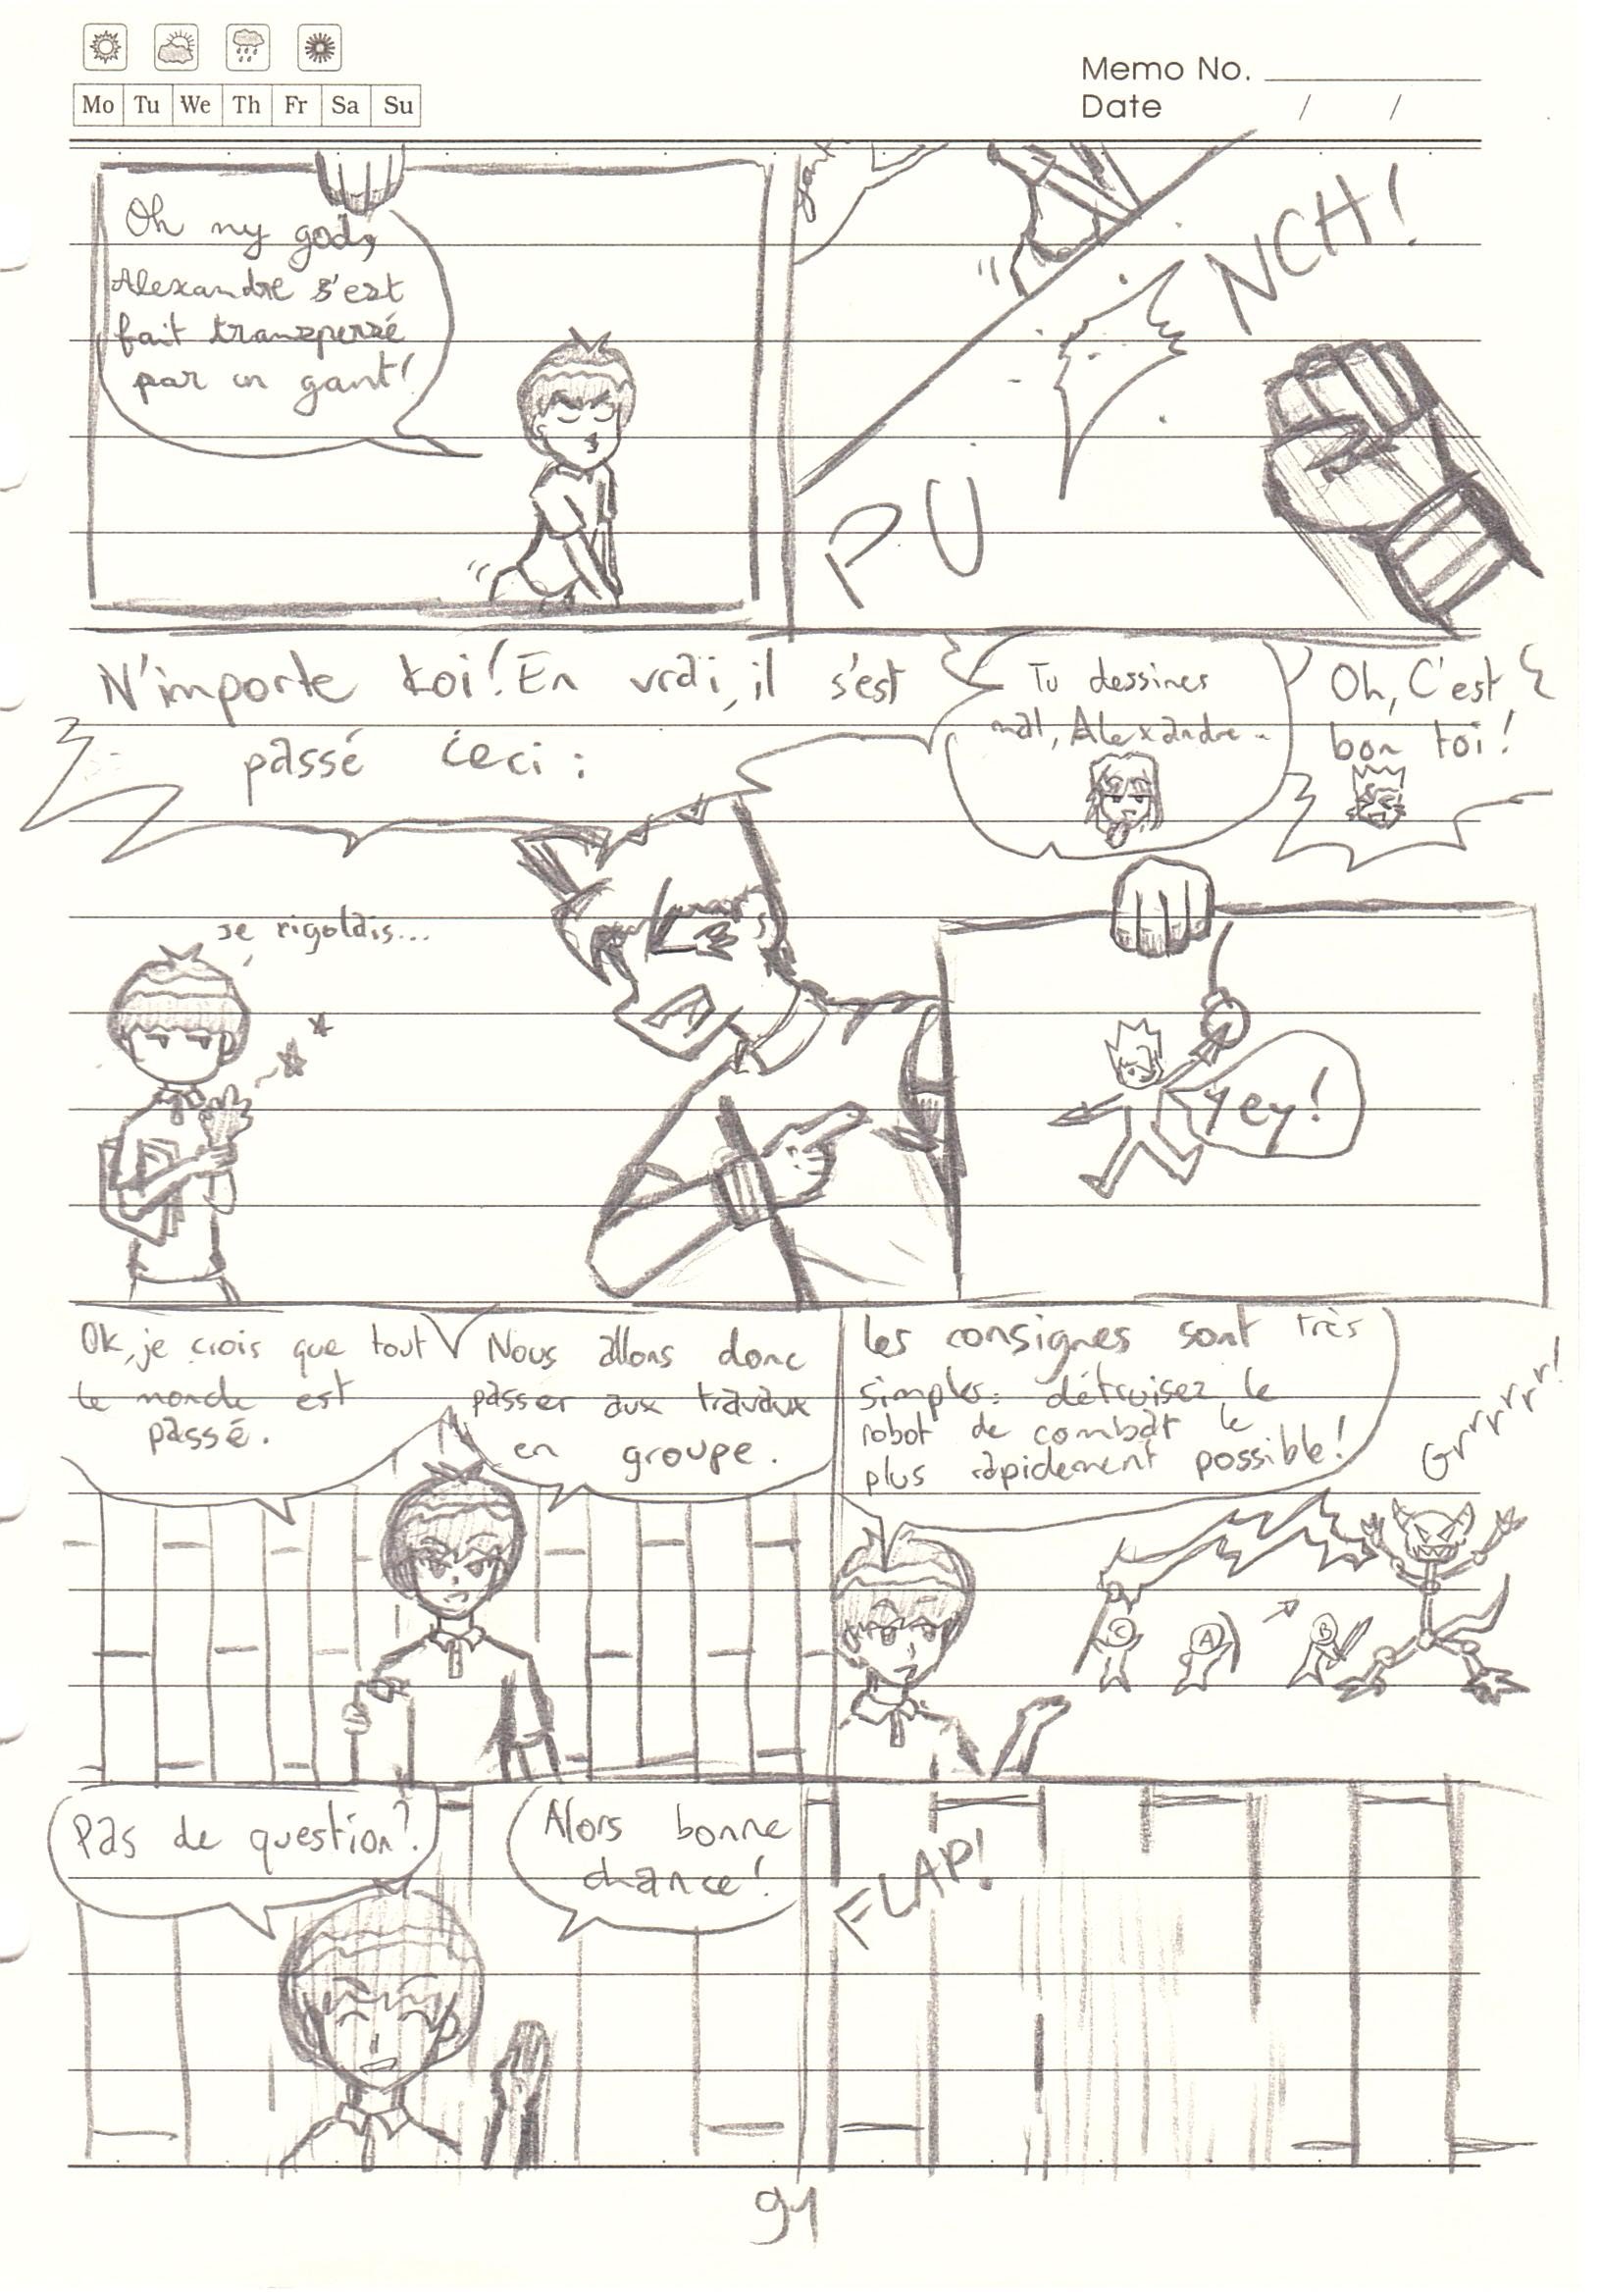 Mo Tu We Th Fr Sa Su
Memo No.
Date / /
Oh my god,
Alexandre s'est
fait transpersé
par un gant!
PUNCH!
N'importe koi! En vrai, il s'est
passé ceci :
Tu dessines
mal, Alexandre..
Oh, C'est
bon toi!
Je rigolais...
Yey!
Ok, je crois que tout
le monde est
passé.
Nous allons donc
passer aux travaux
en groupe.
Les consignes sont très
simples: détruisez le
robot de combat le
plus rapidement possible!
Grrrrr!
C
A
B
Pas de question?
Alors bonne
chance!
FLAP!
91